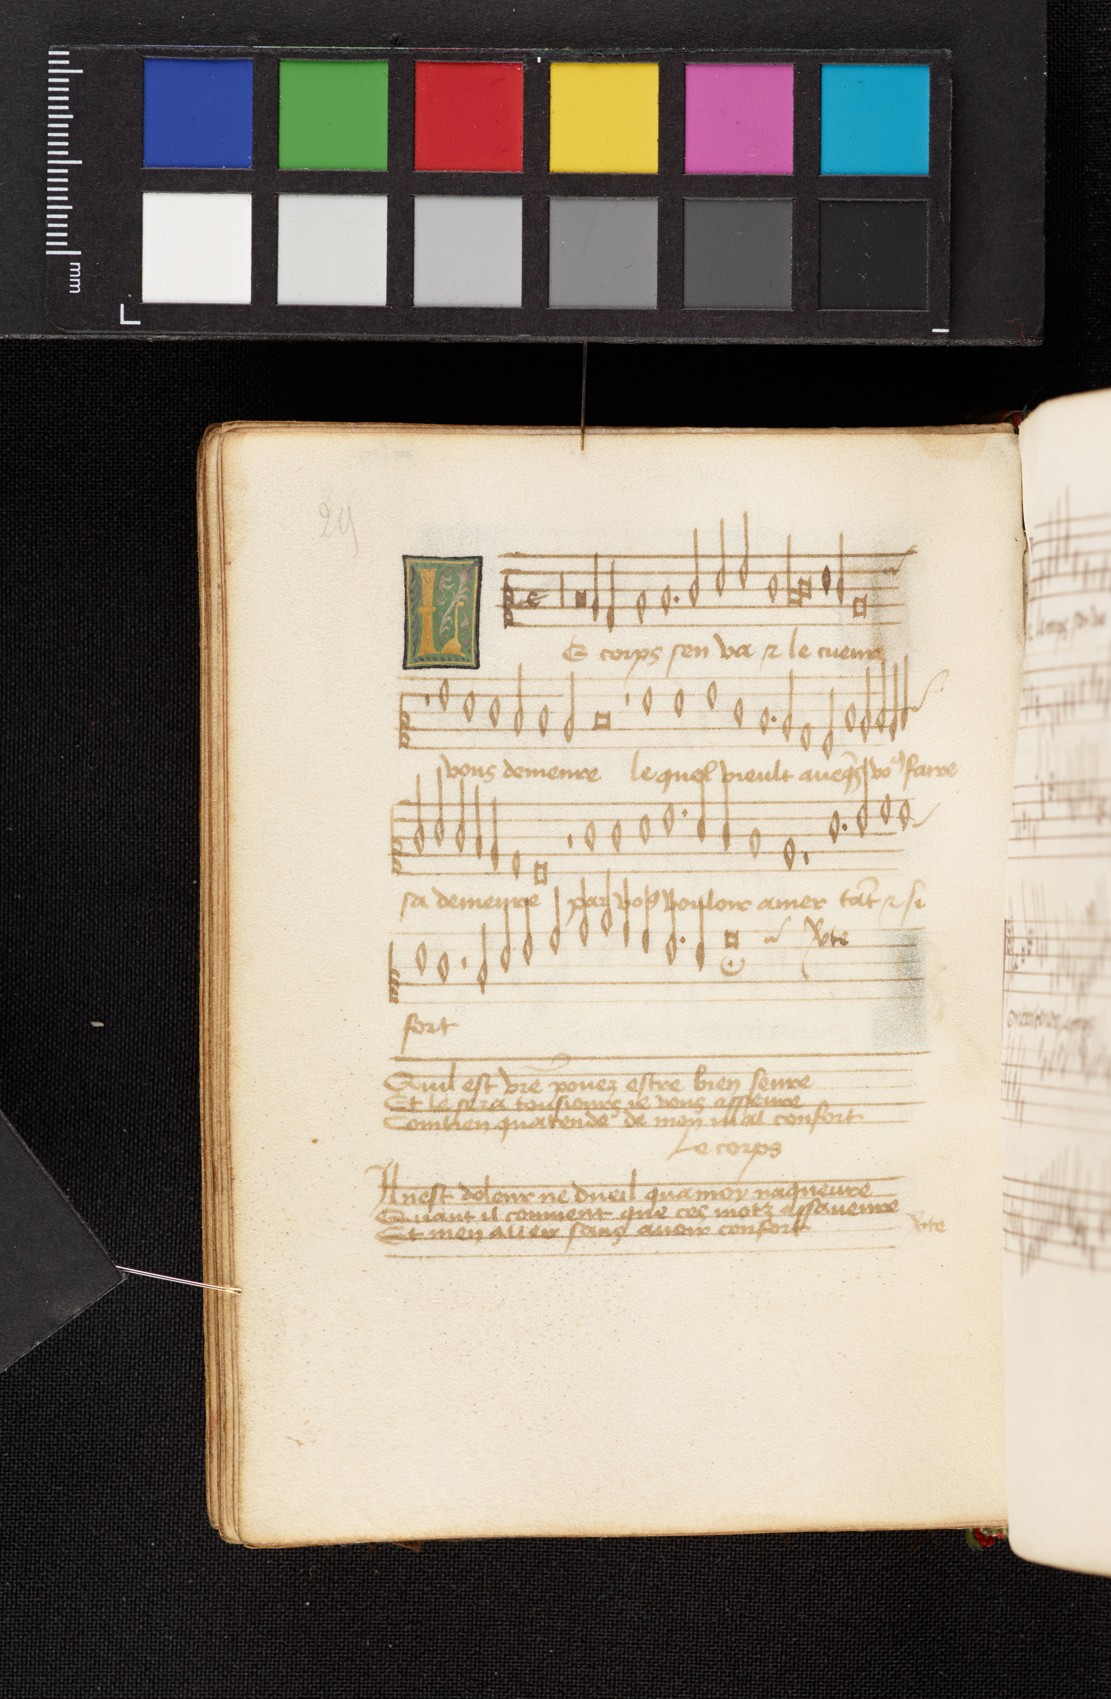 mm
29
LE corps sen va & le cueur
vous demeure le quel vieult aueq̃s vo9 faire
sa demeure par vo9 vouloir amer tãt & si
vte
fort
Quil est vr̃e pouez estre bien seure
Et le sera tousiours ie vous asseure
Combien quatende de mon mal confort
Le corps
Il nest doleur ne dueil qua moy naqueure
Quant il conuient que ces motz assaueure
Et men aller sans auoir confort
vte